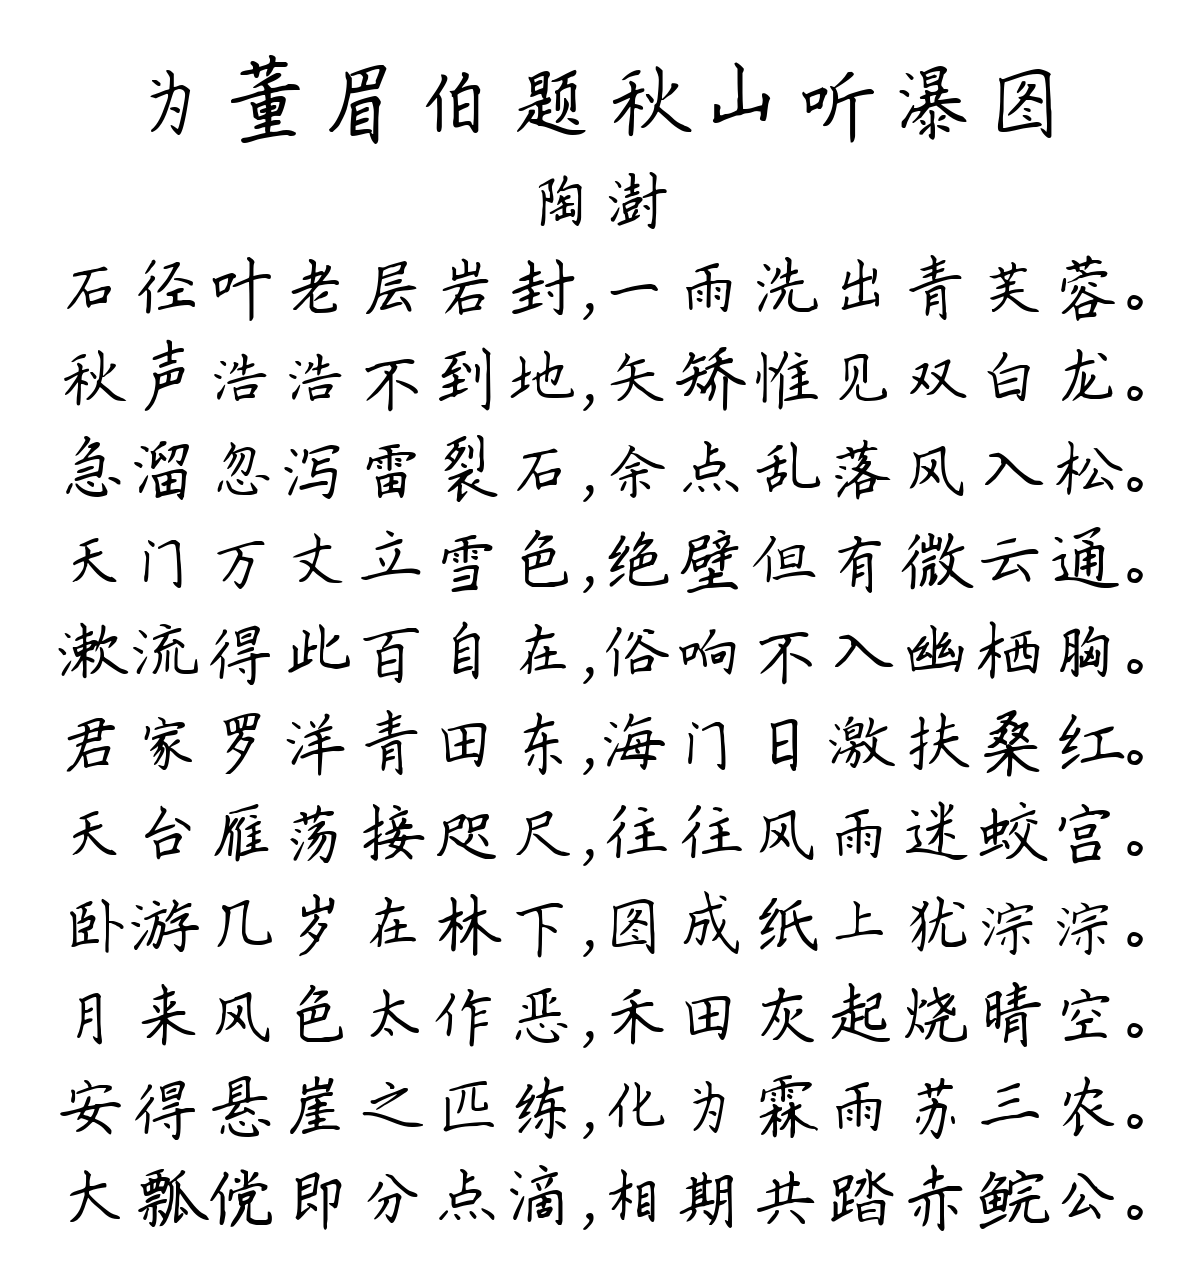 为董眉伯题秋山听瀑图
陶澍
石径叶老层岩封,一雨洗出青芙蓉。
秋声浩浩不到地,矢矫惟见双白龙。
急溜忽泻雷裂石,余点乱落风入松。
天门万丈立雪色,绝壁但有微云通。
漱流得此百自在,俗响不入幽栖胸。
君家罗洋青田东,海门日激扶桑红。
天台雁荡接咫尺,往往风雨迷蛟宫。
卧游几岁在林下,图成纸上犹淙淙。
月来风色太作恶,禾田灰起烧晴空。
安得悬崖之匹练,化为霖雨苏三农。
大瓢傥即分点滴,相期共踏赤鲩公。